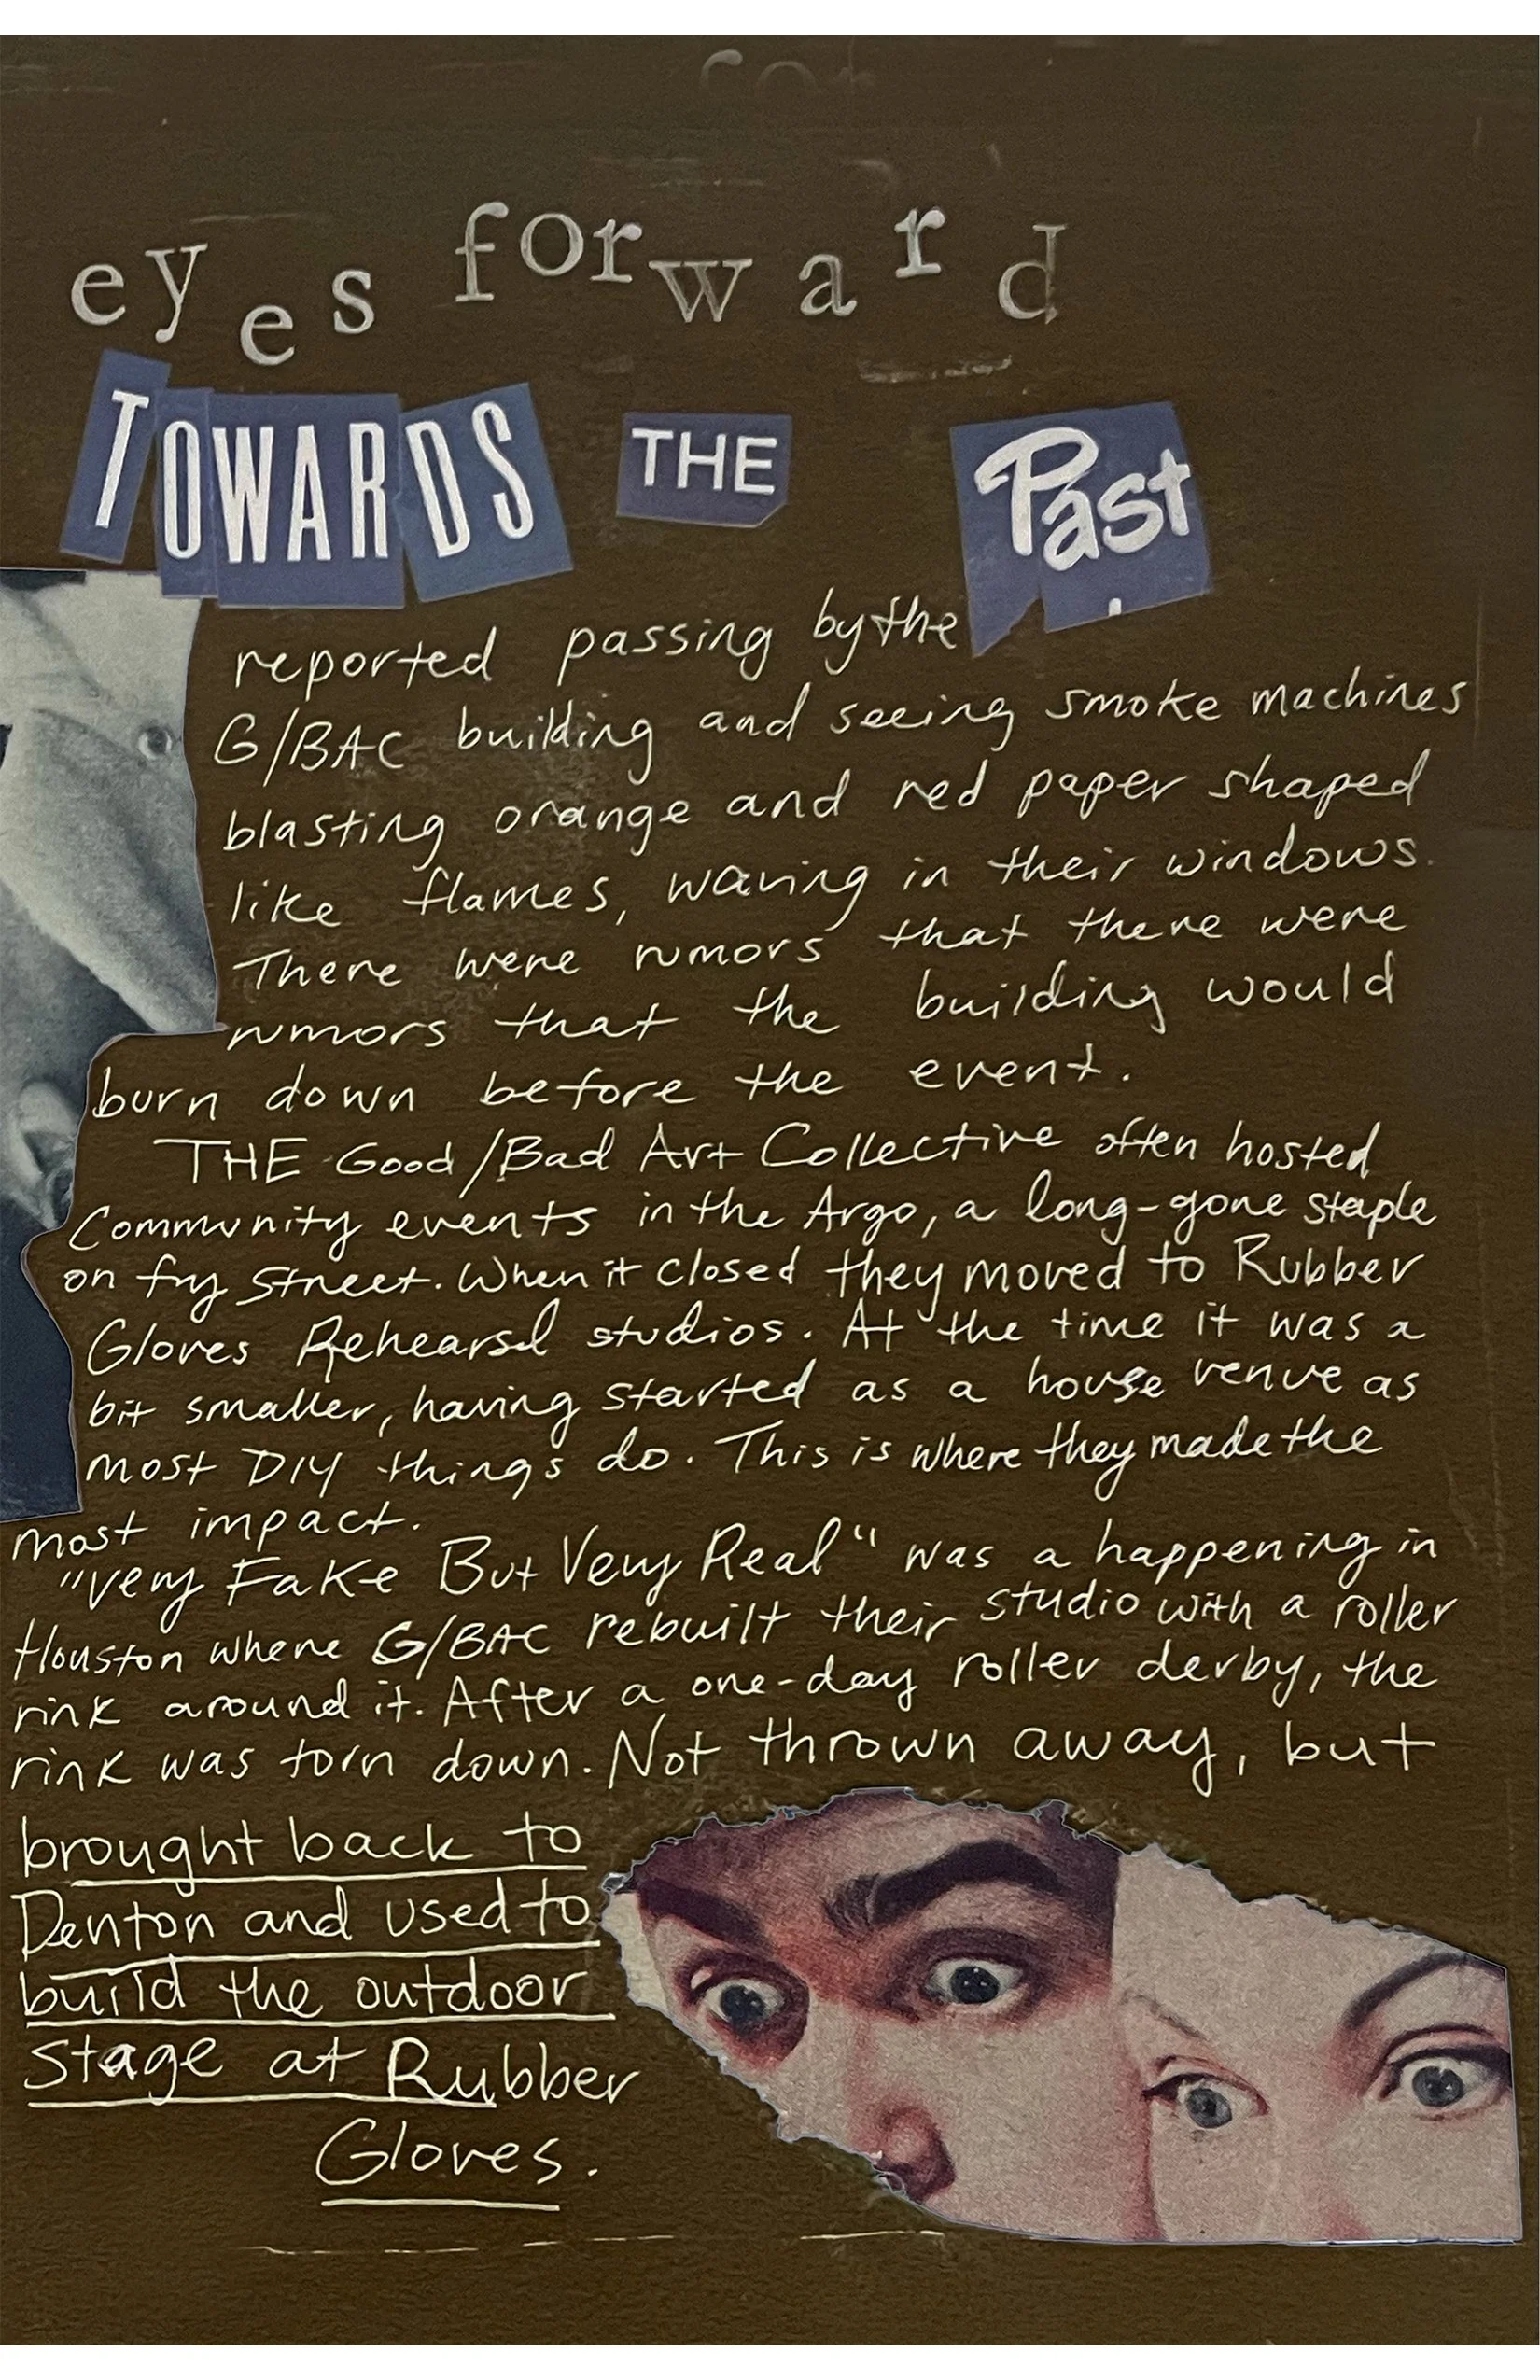 eyes forward
TOWARDS THE Past
reported passing by the
G/BAC building and seeing smoke machines
blasting orange and red paper shaped
like flames, waving in their windows.
There were rumors that there were
rumors that the building would
burn down before the event.
THE Good/Bad Art Collective often hosted
Community events in the Argo, a long-gone staple
on fry Street. When it closed they moved to Rubber
Gloves Rehearsal studios. At the time it was a
bit smaller, having started as a house venue as
most DIY things do. This is where they made the
most impact.
"Very Fake But Very Real" was a happening in
Houston where G/BAC rebuilt their studio with a roller
rink around it. After a one-day roller derby, the
rink was torn down. Not thrown away, but
brought back to
Denton and used to
build the outdoor
Stage at Rubber
Gloves.